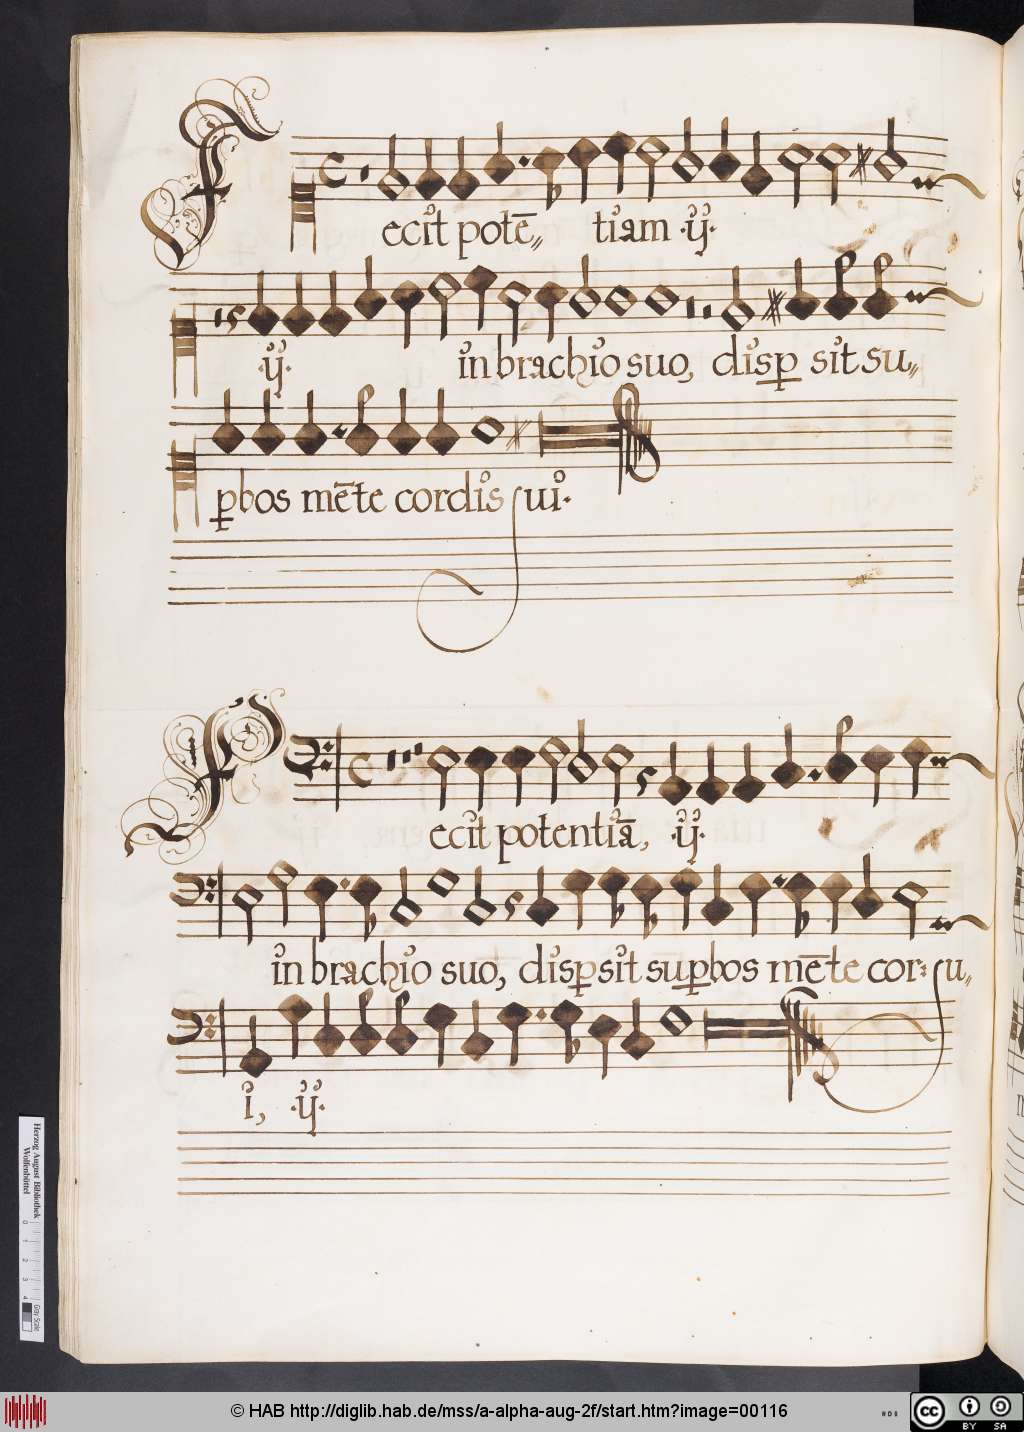 Fecit potē〃 tiam ·ij·
·ij· in brachio suo, disꝑ sit su〃
ꝑbos mēte cordis sui·
Fecit potentiā, ·ij·
in brachio suo, disꝑsit suꝑbos mēte cor: su〃
i, ·ij·
Herzog August Bibliothek
Wolfenbüttel
0 1 2 3 4
Gray Scale
© HAB http://diglib.hab.de/mss/a-alpha-aug-2f/start.htm?image=00116
cc BY SA